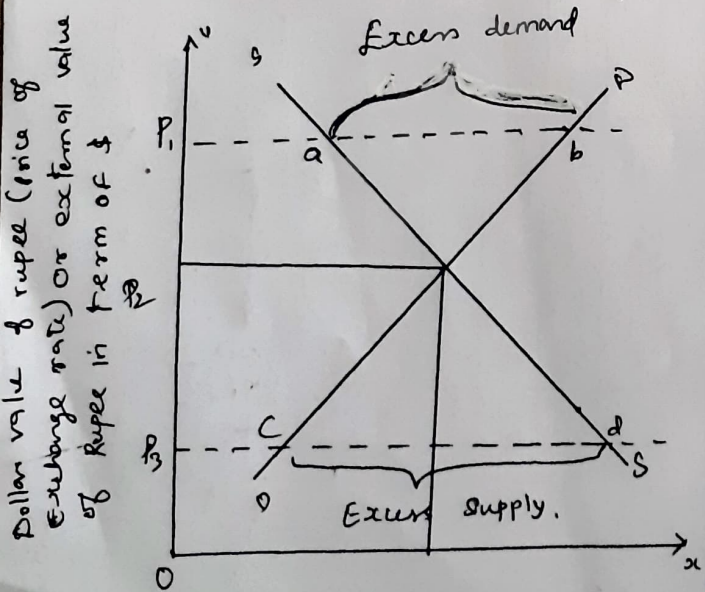 Dollar value of rupee (price of
Exchange rate) or external value
of Rupee in term of $
y
Excess demand
S
D
P1
a
b
P2
P3
C
d
D
S
Excess Supply.
O
x